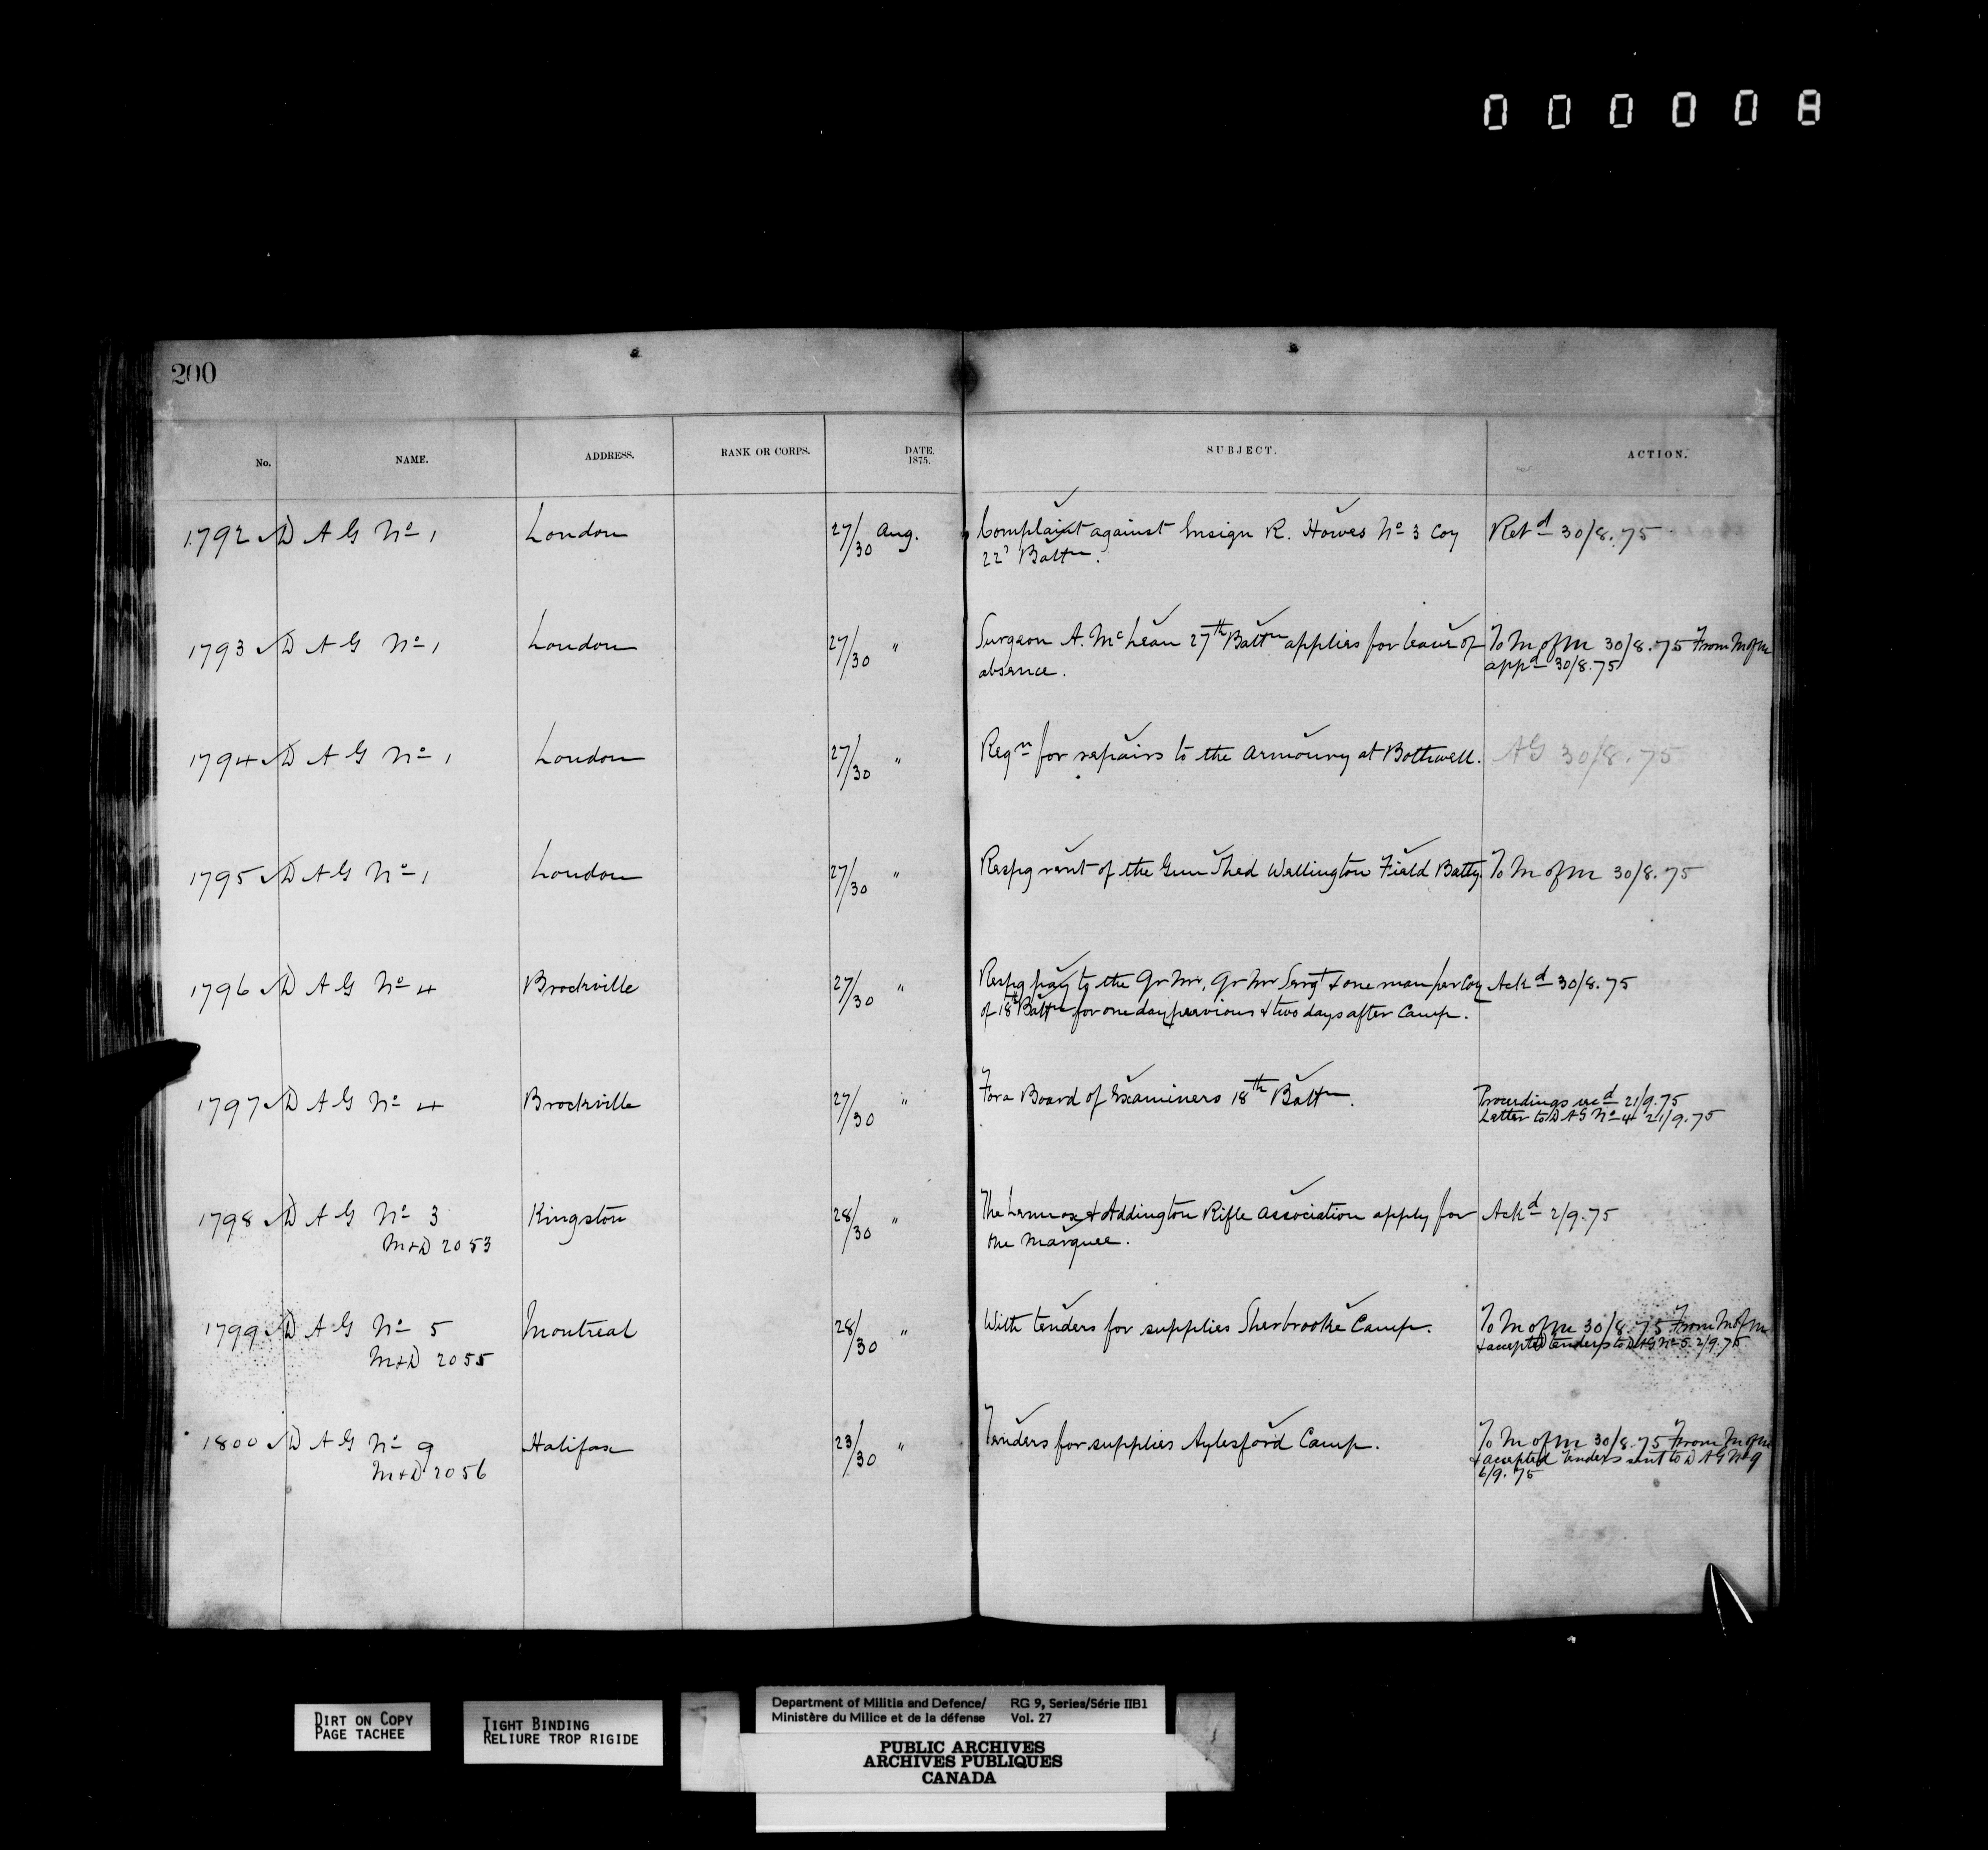 000008
200
No. NAME. ADDRESS. RANK OR CORPS. DATE. 1875. SUBJECT. ACTION.
1792 D A G No 1 London 27/30 Aug. Complaint against Ensign R. Howes No 3 Coy Retd 30/8.75
22d Battn.
1793 D A G No 1 London 27/30 " Surgeon A. McLean 27th Battn applies for leave of To M of M 30/8.75 From M of M
absence. appd 30/8.75
1794 D A G No 1 London 27/30 " Reqn for repairs to the Armoury at Bothwell. AG 30/8.75
1795 D A G No 1 London 27/30 " Respg rent of the Gun Shed Wellington Field Batty. To M of M 30/8.75
1796 D A G No 4 Brockville 27/30 " Respg pay to the Qr Mr, Qr Mr Sergt & one man per Coy Ackd 30/8.75
of 18th Battn for one day previous & two days after Camp.
1797 D A G No 4 Brockville 27/30 " For a Board of Examiners 18th Battn. Proceedings recd 21/9.75
Letter to D A G No 4 21/9.75
1798 D A G No 3 Kingston 28/30 " The Lennox & Addington Rifle Association apply for Ackd 2/9.75
M&D 2053 one Marquee.
1799 D A G No 5 Montreal 28/30 " With tenders for supplies Sherbrooke Camp. To M of M 30/8.75 From M of M
M&D 2055 & accepted tenders to DAG No 5. 2/9.75
1800 D A G No 9 Halifax 23/30 " Tenders for supplies Aylesford Camp. To M of M 30/8.75 From M of M
M&D 2056 & accepted tenders sent to D A G No 9
6/9.75
DIRT ON COPY
PAGE TACHEE
TIGHT BINDING
RELIURE TROP RIGIDE
Department of Militia and Defence/ RG 9, Series/Série IIB1
Ministère du Milice et de la défense Vol. 27
PUBLIC ARCHIVES
ARCHIVES PUBLIQUES
CANADA